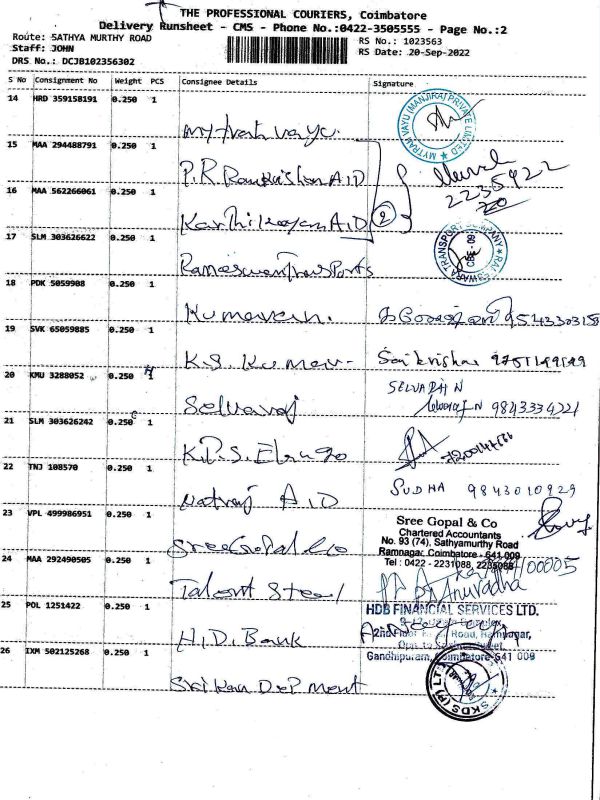 THE PROFESSIONAL COURIERS, Coimbatore
Delivery Runsheet - CMS - Phone No.:0422-3505555 - Page No.:2
Route: SATHYA MURTHY ROAD
Staff: JOHN
DRS No.: DCJB102356302
RS No.: 1023563
RS Date: 20-Sep-2022
S No Consignment No Weight PCS Consignee Details Signature
14 HRD 359158191 0.250 1
MYTRAM VAYU (MANJIRA) PRIVATE LIMITED
15 MAA 294488791 0.250 1
16 MAA 562266061 0.250 1
2
17 SLM 303626622 0.250 1
CBE-09
18 PDK 5059908 0.250 1
Kumaran.
19 SVK 65059885 0.250 1
K.S. Kumar-
20 KMU 3288052 0.250 1
Selvaraj
SELVARAJ N
9843334221
21 SLM 303626242 0.250 1
K.P.S. Elango
22 TNJ 108570 0.250 1
Natraj A/D
SUDHA 9843010929
23 VPL 499986951 0.250 1
Sree Gopal & Co
Sree Gopal & Co
Chartered Accountants
No. 93 (74), Sathyamurthy Road
Ramnagar, Coimbatore - 641 009
Tel : 0422 - 2231088,
24 MAA 292490505 0.250 1
Talent Steel
Anuradha
25 POL 1251422 0.250 1
H.D. Bank
HDB FINANCIAL SERVICES LTD.
2nd Floor Road, Ramnagar,
Gandhipuram, Coimbatore-641 009
26 IXM 502125268 0.250 1
SKDS (P) LTD